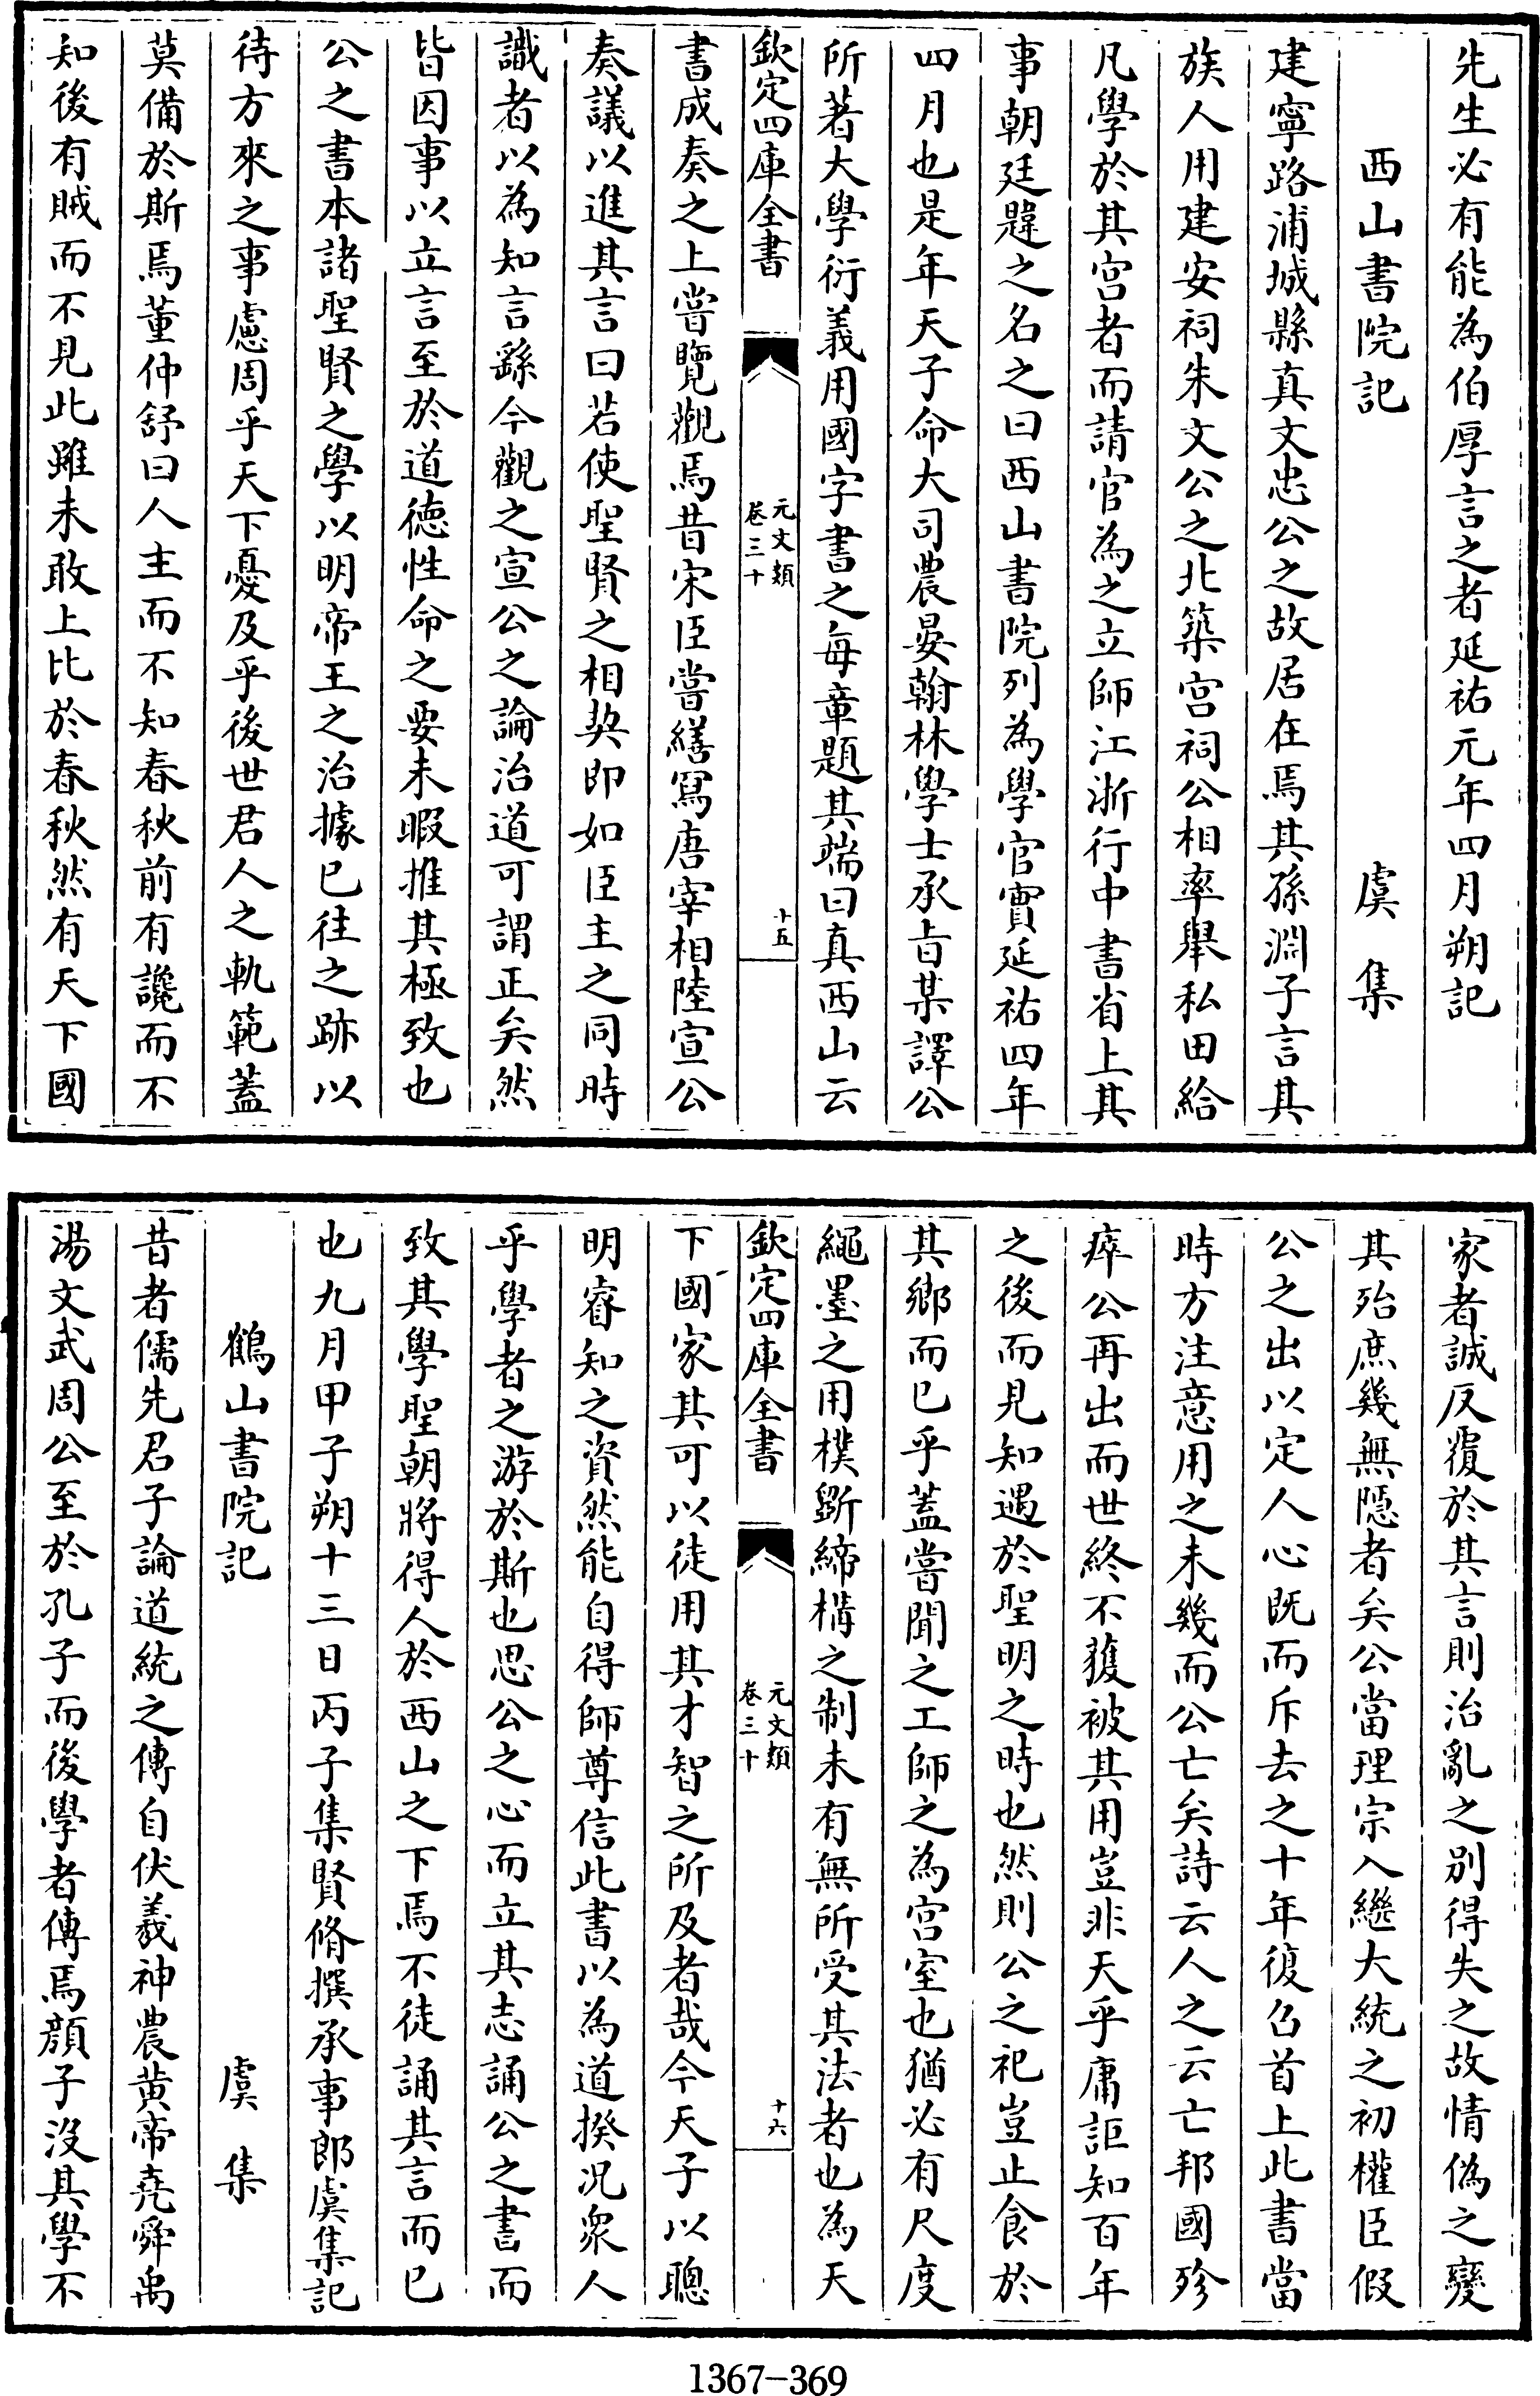 先生必有能為伯厚言之者延祐元年四月朔記
西山書院記 虞集
建寧路浦城縣真文忠公之故居在焉其孫淵子言其
族人用建安祠朱文公之北築宫祠公相率舉私田給
凡學於其宫者而請官為之立師江浙行中書省上其
事朝廷韙之名之曰西山書院列為學官實延祐四年
四月也是年天子命大司農晏翰林學士承㫖某譯公
所著大學衍義用國字書之每章題其端曰真西山云
欽定四庫全書 元文類 卷三十 十五
書成奏之上嘗覽觀焉昔宋臣嘗繕寫唐宰相陸宣公
奏議以進其言曰若使聖賢之相契即如臣主之同時
識者以為知言繇今觀之宣公之論治道可謂正矣然
皆因事以立言至於道徳性命之要未暇推其極致也
公之書本諸聖賢之學以明帝王之治據已往之跡以
待方來之事慮周乎天下憂及乎後世君人之軌範蓋
莫備於斯焉董仲舒曰人主而不知春秋前有讒而不
知後有賊而不見此雖未敢上比於春秋然有天下國
家者誠反覆於其言則治亂之别得失之故情偽之變
其殆庶幾無隠者矣公當理宗入繼大統之初權臣假
公之出以定人心既而斥去之十年復召首上此書當
時方注意用之未幾而公亡矣詩云人之云亡邦國殄
瘁公再出而世終不獲被其用豈非天乎庸詎知百年
之後而見知遇於聖明之時也然則公之祀豈止食於
其鄉而已乎蓋嘗聞之工師之為宫室也猶必有尺度
繩墨之用樸斵締構之制未有無所受其法者也為天
欽定四庫全書 元文類 卷三十 十六
下國家其可以徒用其才智之所及者哉今天子以聰
明睿知之資然能自得師尊信此書以為道揆况衆人
乎學者之游於斯也思公之心而立其志誦公之書而
致其學聖朝將得人於西山之下焉不徒誦其言而已
也九月甲子朔十三日丙子集賢脩撰承事郎虞集記
鶴山書院記 虞集
昔者儒先君子論道統之傳自伏羲神農黄帝堯舜禹
湯文武周公至於孔子而後學者傳焉顔子沒其學不
1367-369